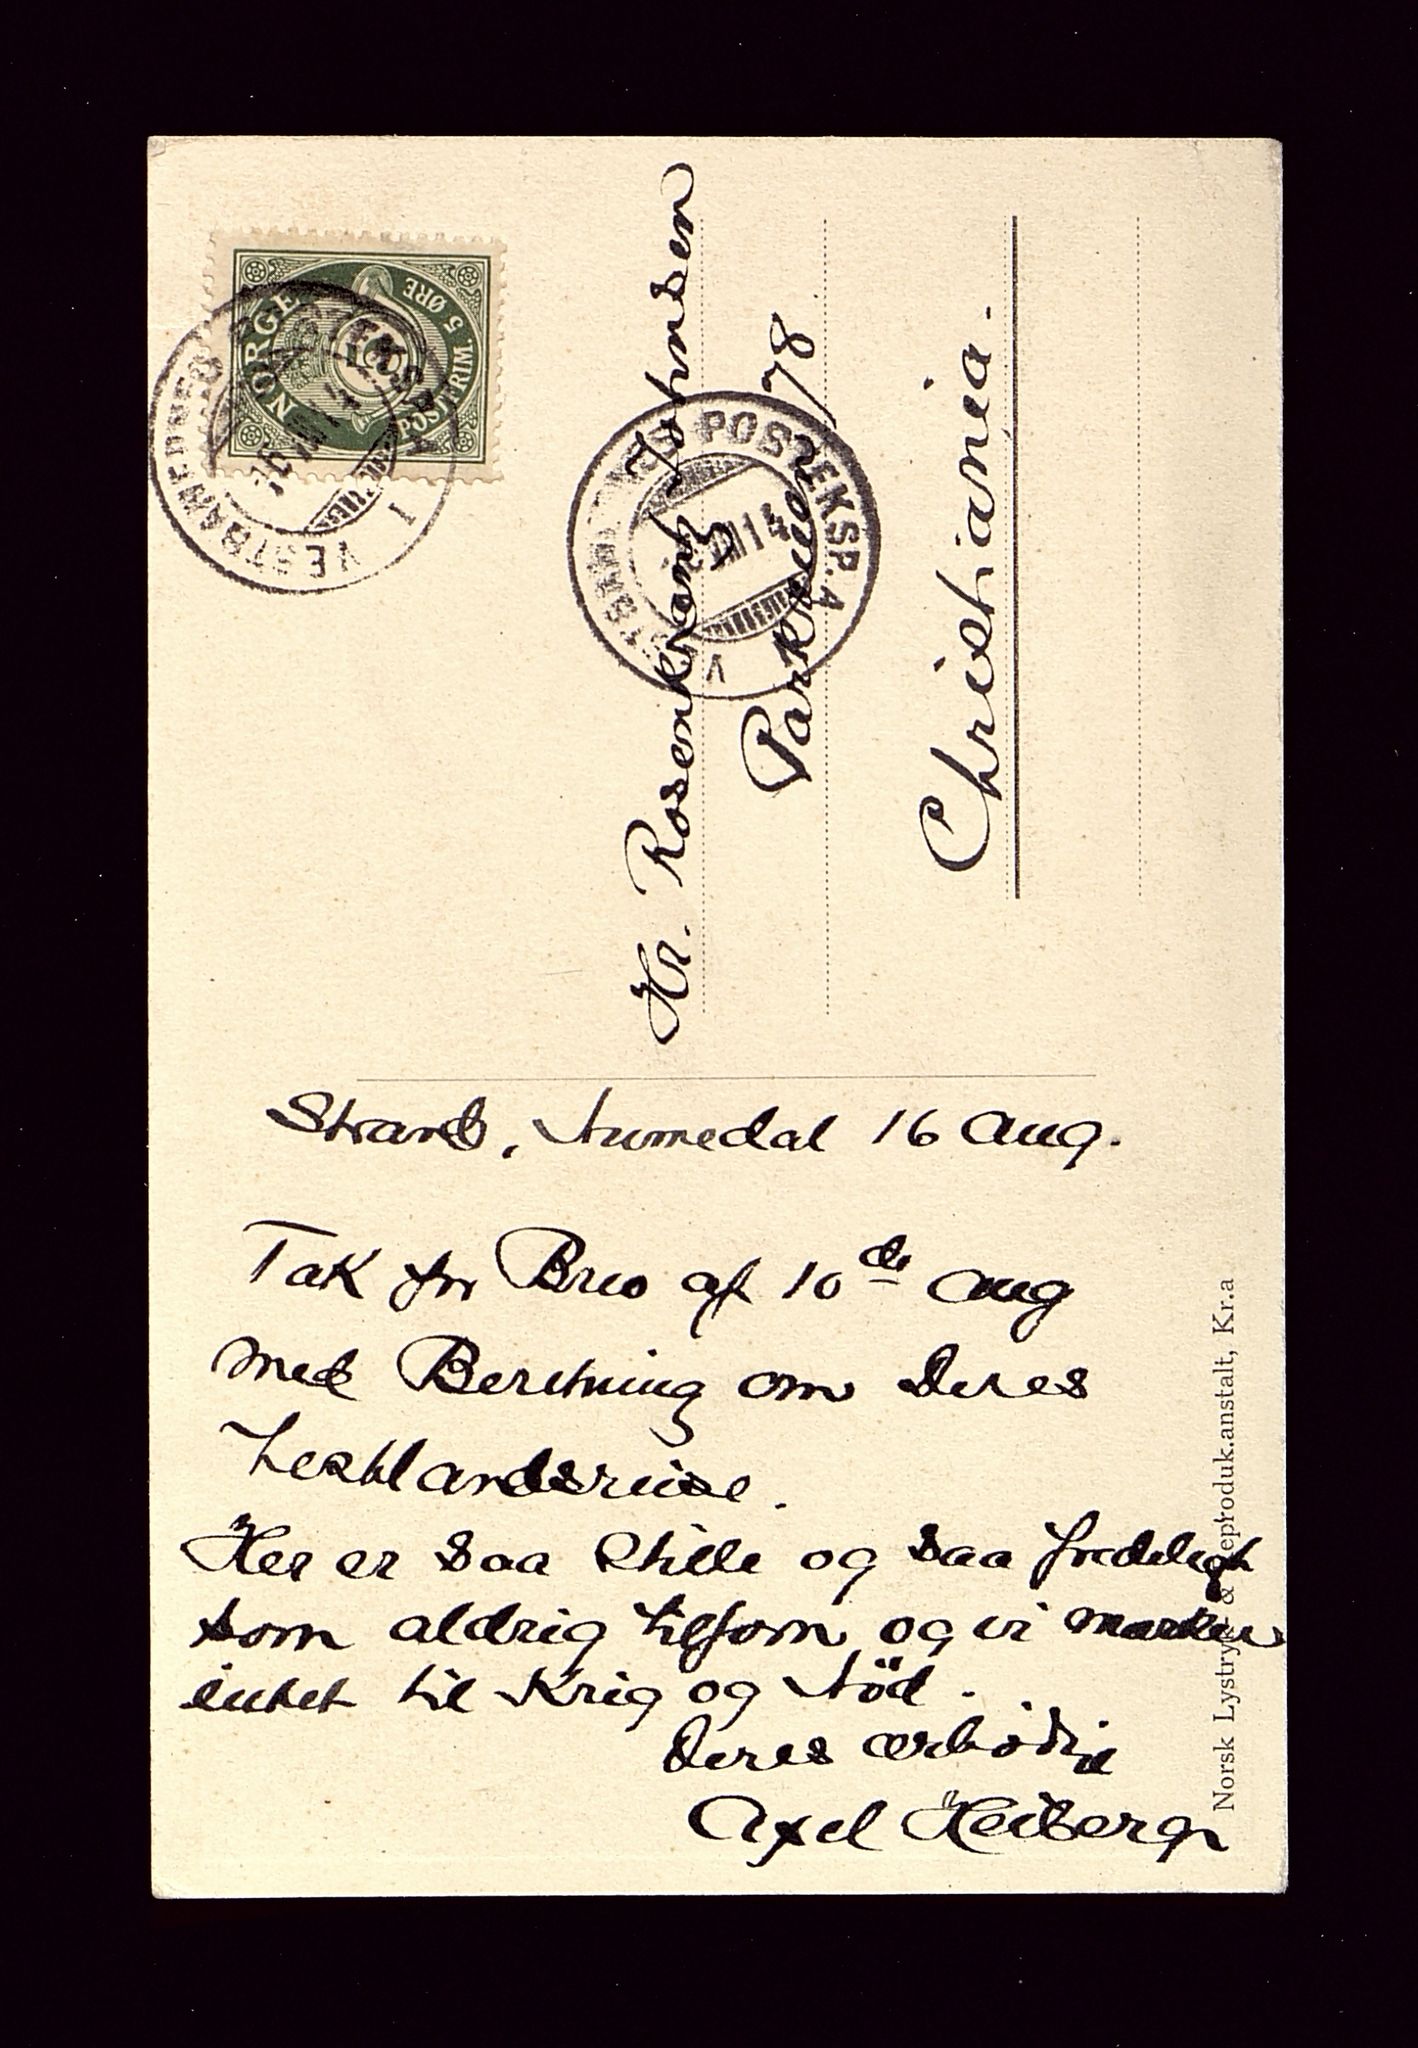 NORGE
POSTFRIM. 5 ØRE
VESTBANERNES POSTEKSP. A
16 VIII 14
VESTBANERNES POSTEKSP. A
VIII 14
Hr. Rosenkrantz Johnsen
Parkveien 78
Christiania.
Strand, Numedal 16 Aug.
Tak for Brev af 10de Aug
med Beretning om Deres
Vestlandsreise.
Her er saa stille og saa fredeligt
som aldrig tilforn og vi mærker
intet til Krig og Nöd.
Deres ærbödige
Axel Heiberg
Norsk Lystryk- & Reproduk.anstalt, Kr.a